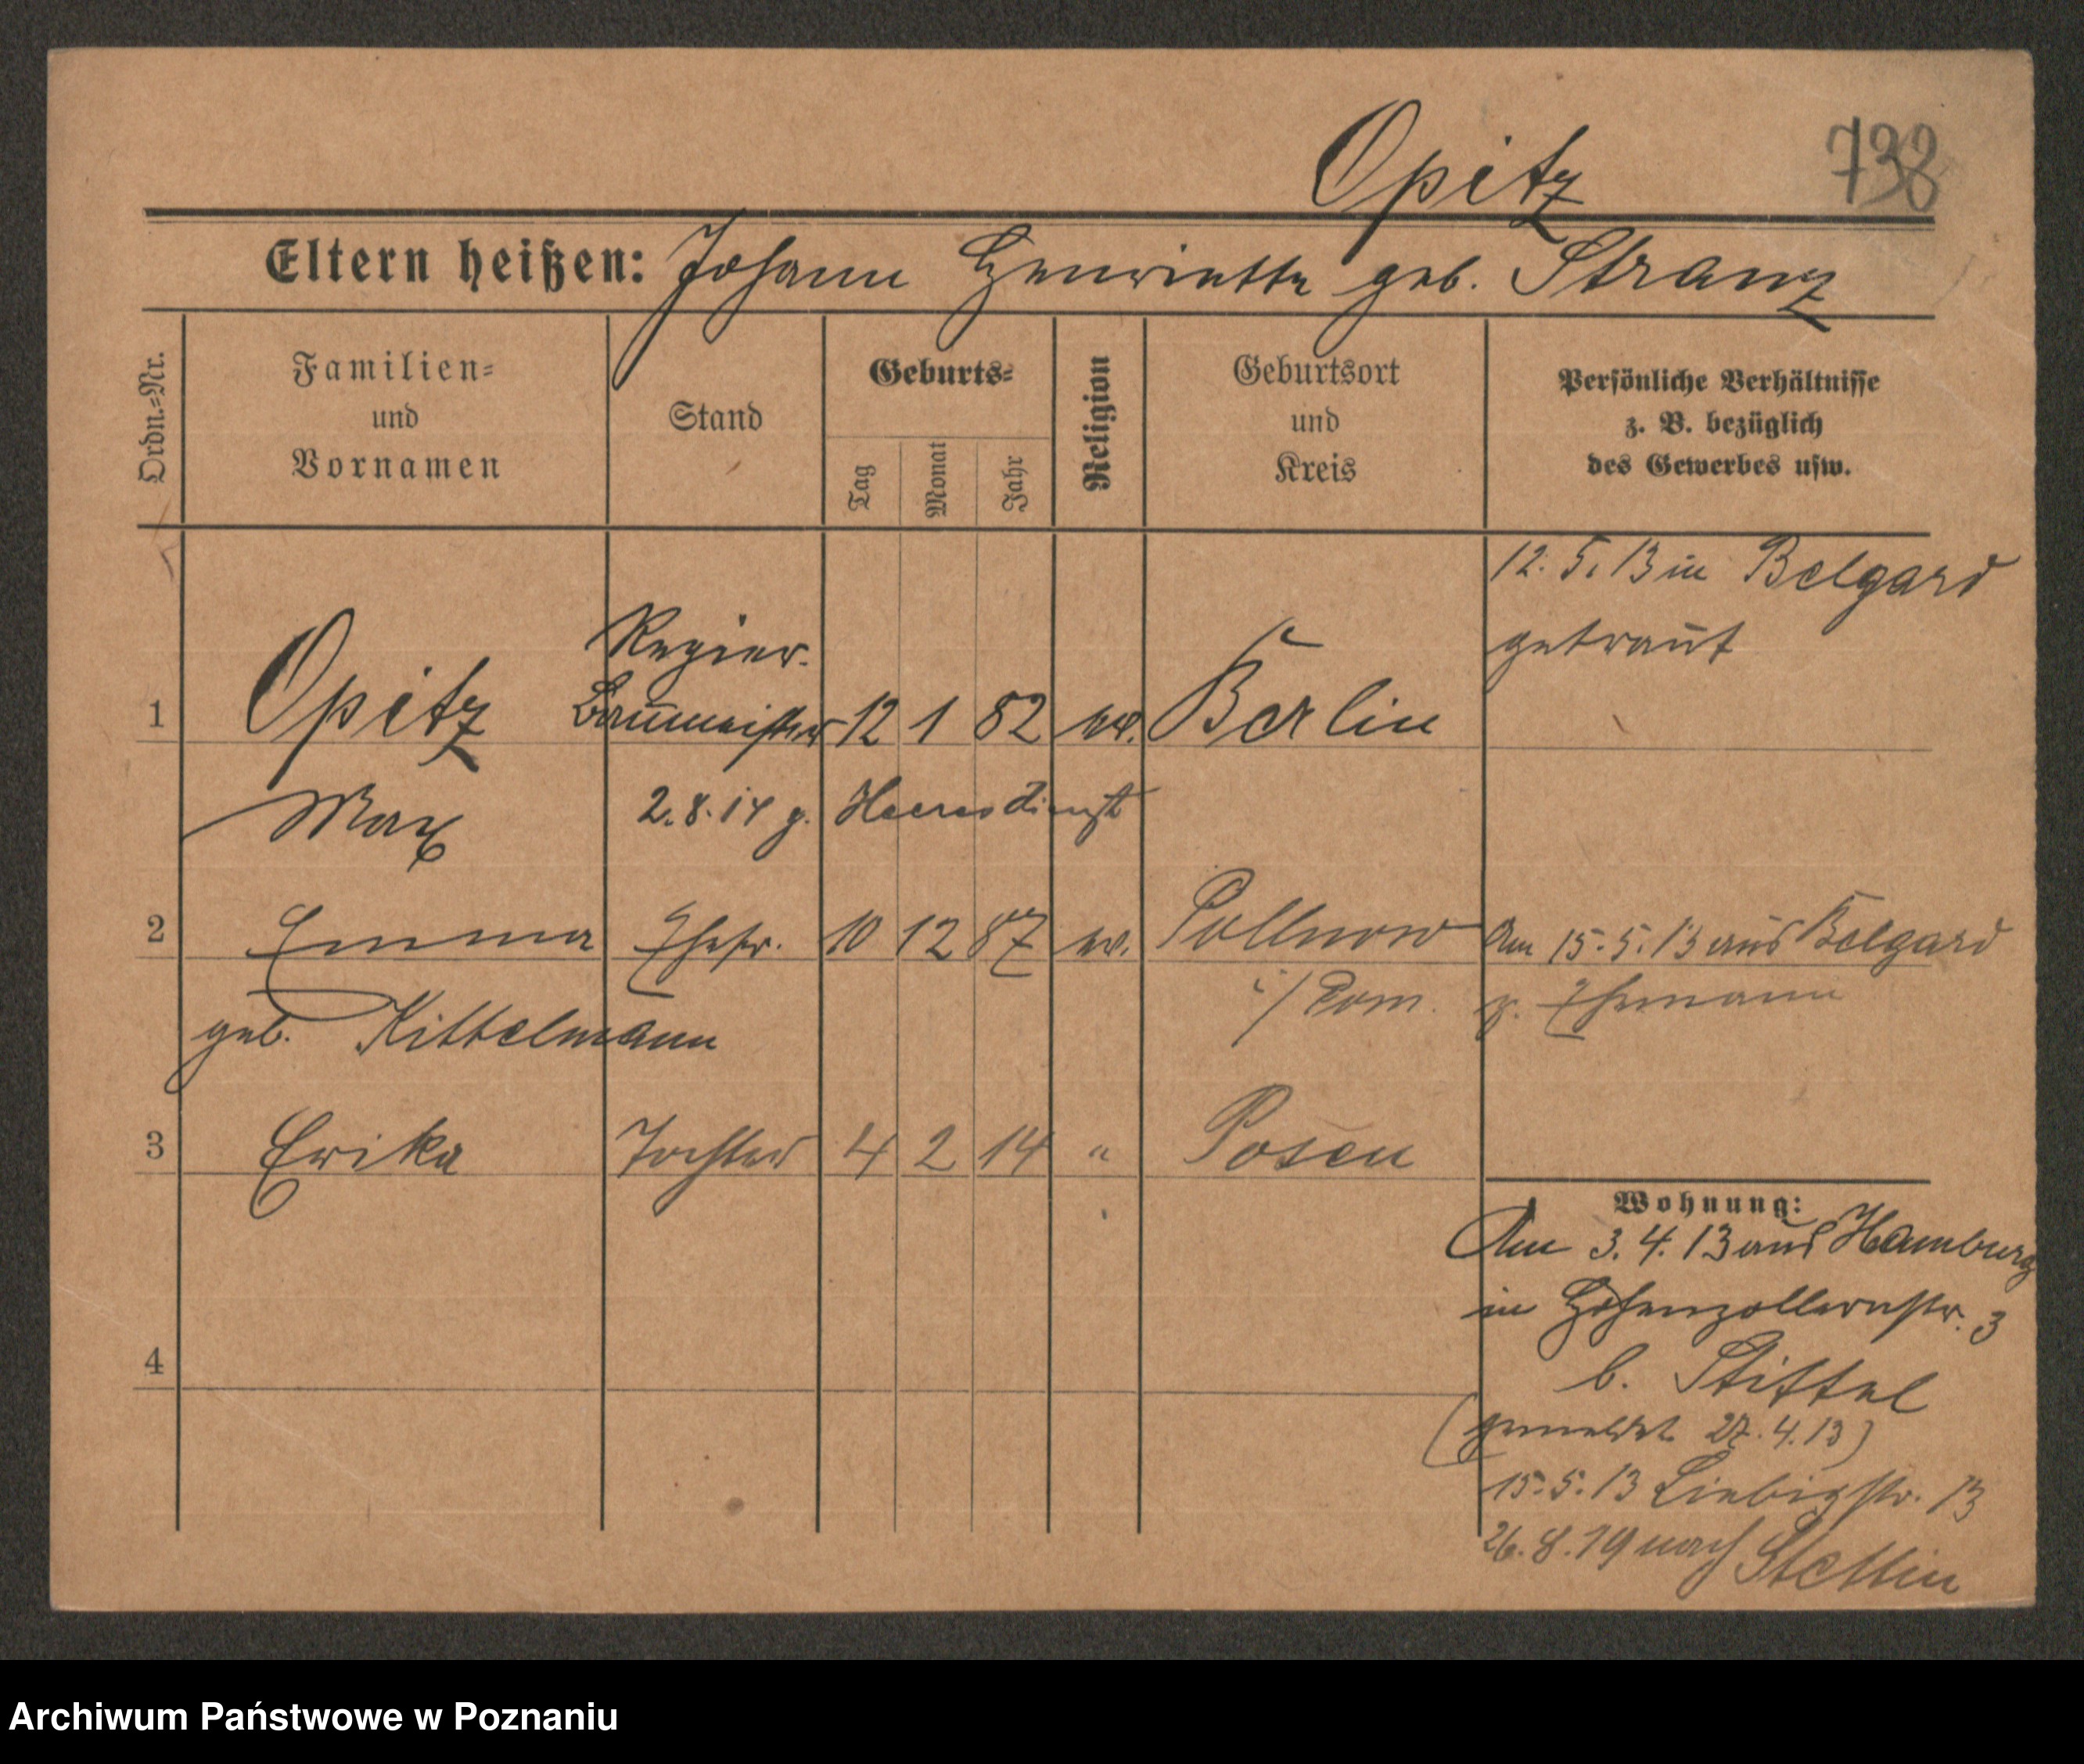 Opitz 738
Eltern heißen: Johann Henriette geb. Stranz
Ordn.=Nr.
Familien=
und
Vornamen
Stand
Geburts=
Tag
Monat
Jahr
Religion
Geburtsort
und
Kreis
Persönliche Verhältnisse
z. B. bezüglich
des Gewerbes usw.
12. 5. 13 in Belgard
getraut
Regier.
1 Opitz Baumeister 12 1 82 ev. Berlin
Max 2.8.14 z. Heeresdienst
2 Emma Ehefr. 10 12 87 ev. Pollnow Am 15.5.13 aus Belgard
geb. Kittelmann i/Pom. z. Ehemann
3 Erika Tochter 4 2 14 " Posen
Wohnung:
Am 3.4.13 aus Hamburg
in Hohenzollernstr. 3
b. Stittel
(gemeldet 27.4.13)
4
15.5.13 Liebigstr. 13
26.8.19 nach Stettin
Archiwum Państwowe w Poznaniu